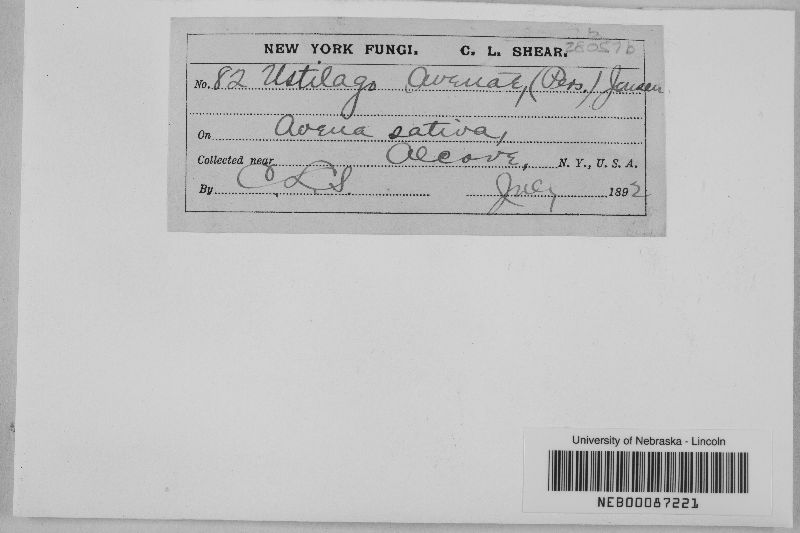 NEW YORK FUNGI. C. L. SHEAR.
280576
No. 82 Ustilago Avenae, (Pers.) Jensen
On Avena sativa,
Collected near Alcove, N. Y., U. S. A.
By C. L. S. July 1892
University of Nebraska - Lincoln
NEB00087221